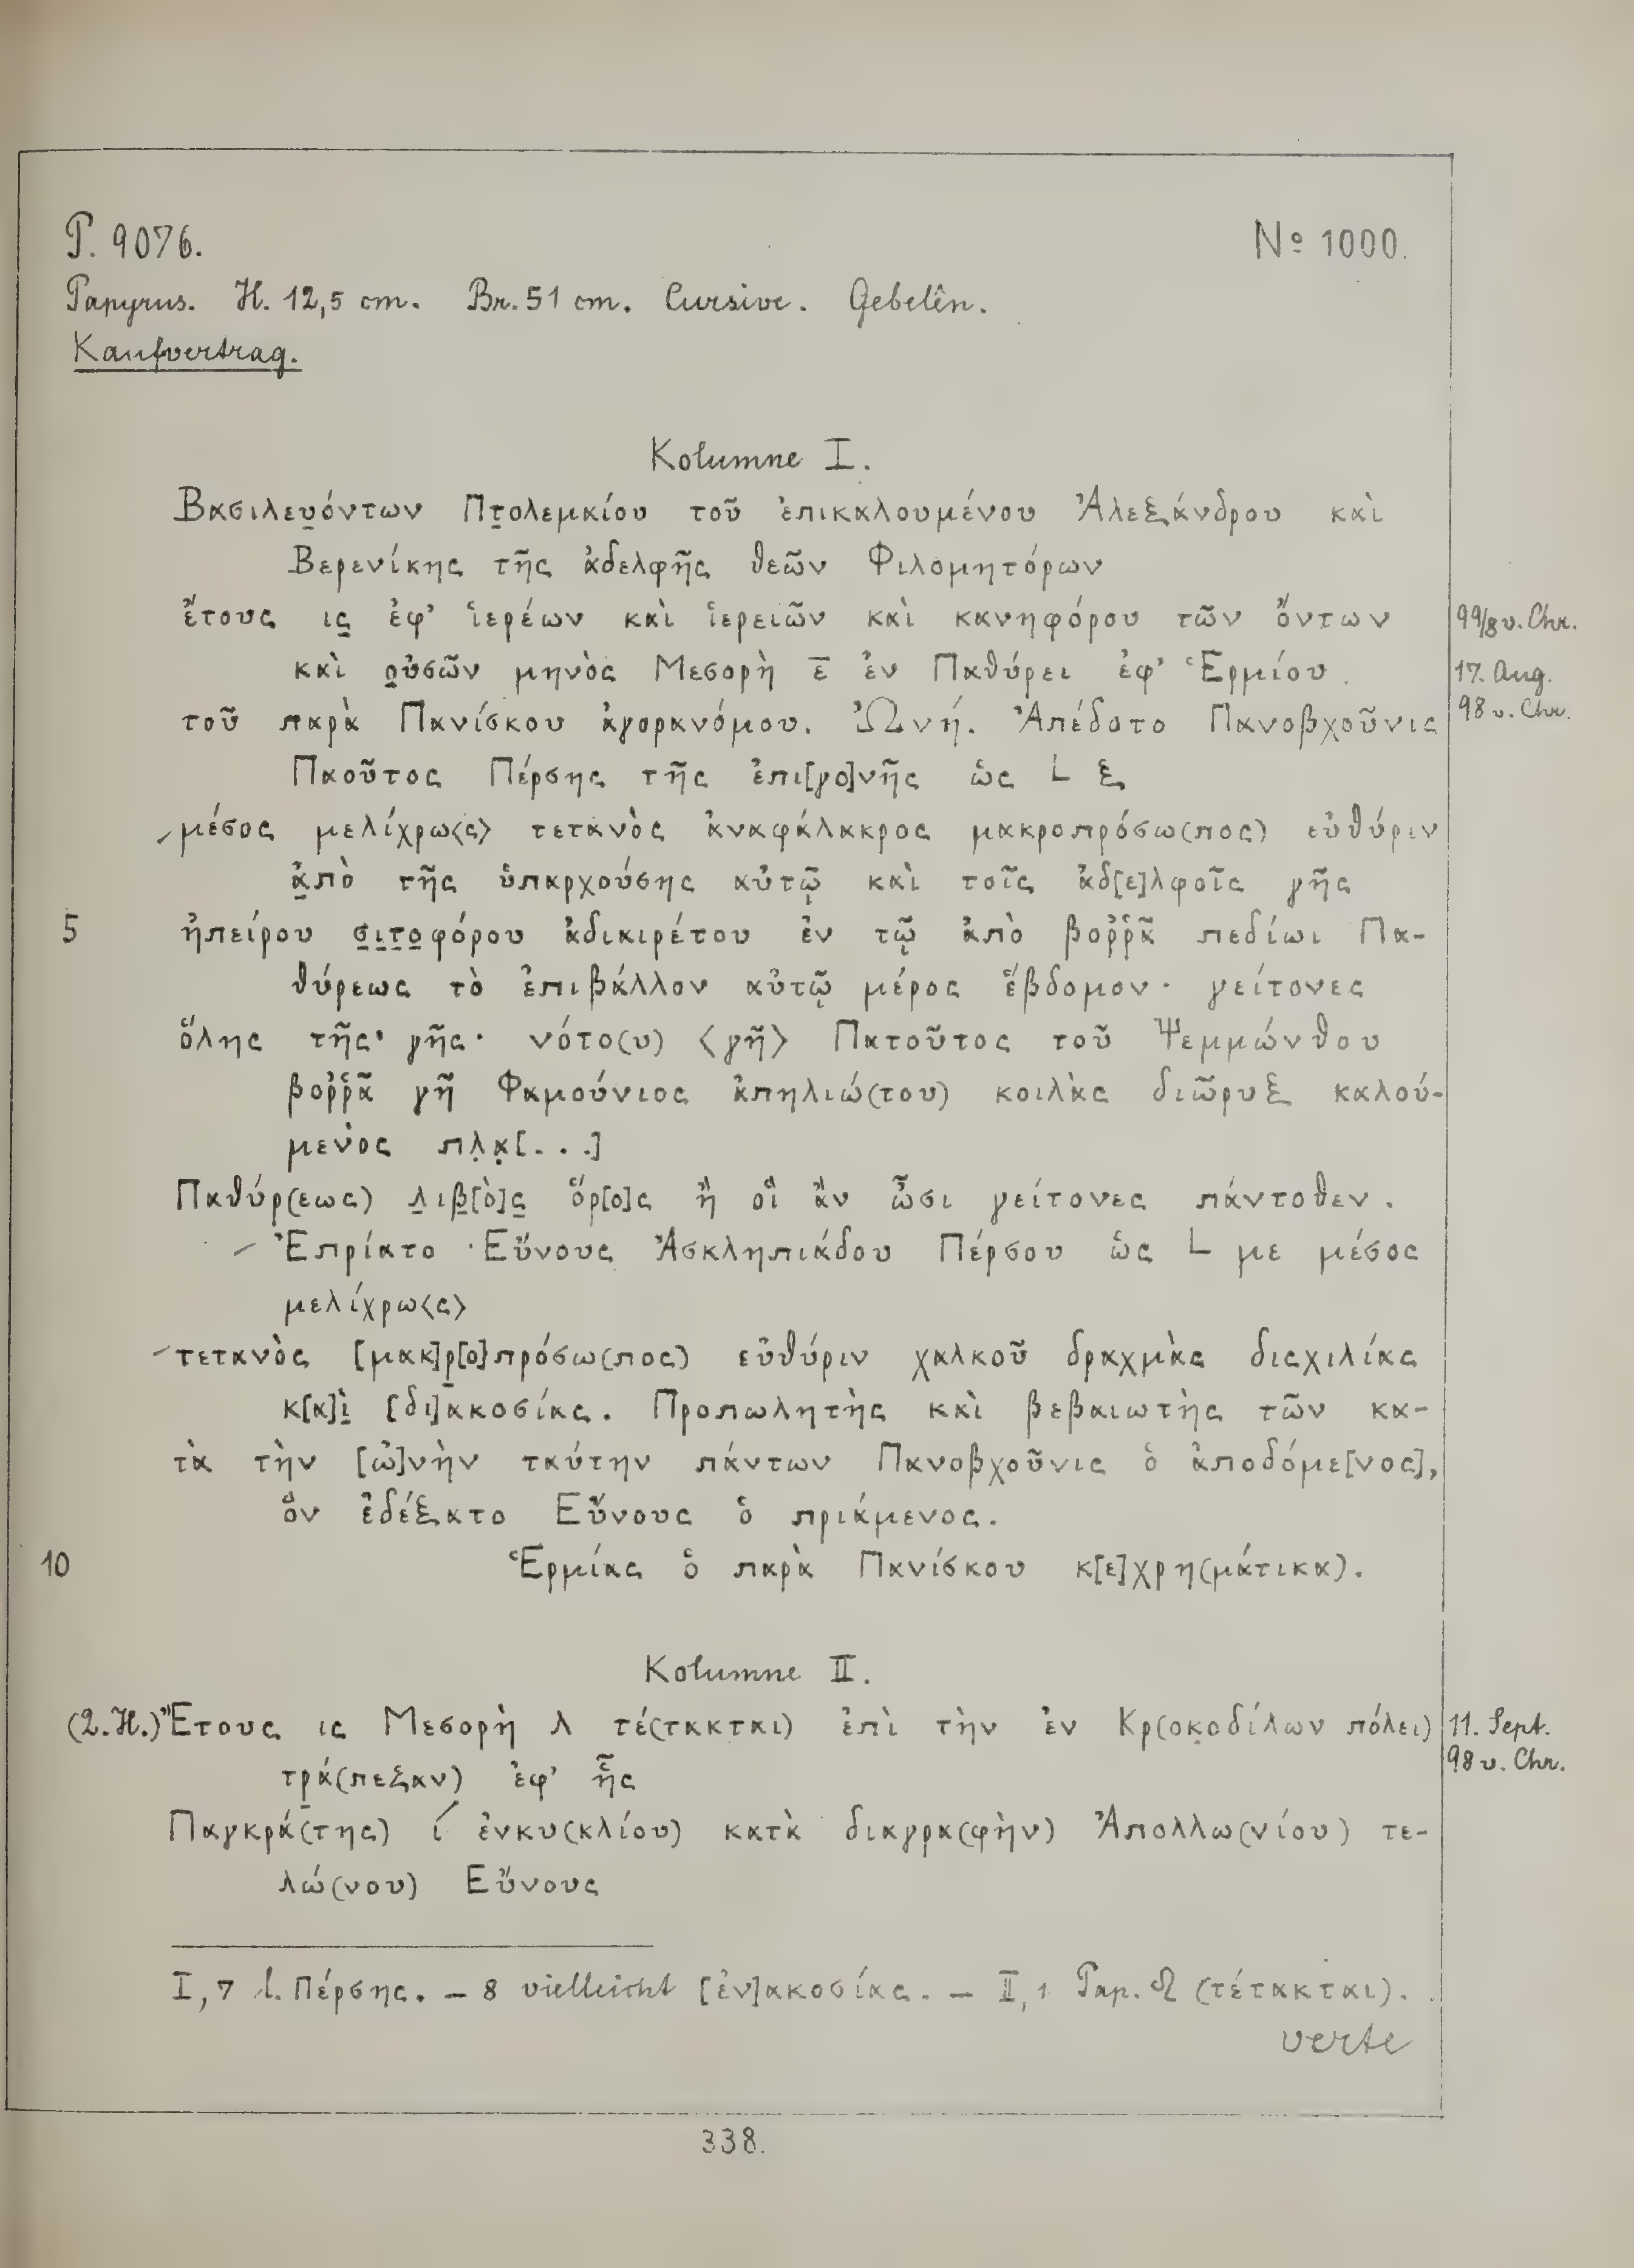 P. 9076. Nº 1000.
Papyrus. H. 12,5 cm. Br. 51 cm. Cursive. Gebelên.
Kaufvertrag.
Kolumne I.
Βασιλευ̣όντων Πτ̣ολεμαίου τοῦ ἐπικαλουμένου Ἀλεξάνδρου καὶ
Βερενίκης τῆς ἀδελφῆς θεῶν Φιλομητόρων
ἔτους ις̣ ἐφ’ ἱερέων καὶ ἱερειῶν καὶ κανηφόρου τῶν ὄντων 99/8 v. Chr.
καὶ ο̣ὐσῶν μηνὸς Μεσορὴ ε̅ ἐν Παθύρει ἐφ’ Ἑρμίου 17. Aug.
τοῦ παρὰ Πανίσκου ἀγορανόμου. Ὠνή. Ἀπέδοτο Πανοβχοῦνις 98 v. Chr.
Παοῦτος Πέρσης τῆς ἐπι[γο]νῆς ὡς L ξ
μέσος μελίχρω⟨ς⟩ τετανὸς ἀναφάλακρος μακροπρόσω(πος) εὐθύριν
ἀ̣πὸ τῆς ὑπαρχούσης αὐτῷ καὶ τοῖς ἀδ[ε]λφοῖς γῆς
5 ἠπείρου σ̣ι̣τ̣ο̣φόρου ἀδιαιρέτου ἐν τῷ ἀπὸ βοῤῥᾶ πεδίωι Πα-
θύρεως τὸ ἐπιβάλλον αὐτῷ μέρος ἕβδομον· γείτονες
ὅλης τῆς γῆς· νότο(υ) ⟨γῆ⟩ Πατοῦτος τοῦ Ψεμμώνθου
βοῤῥᾶ γῆ Φαμούνιος ἀπηλιώ(του) κοιλὰς διῶρυξ καλού-
μενὸς πλ̣α̣[...]
Παθύρ(εως) λ̣ιβ̣[ὸ]ς̣ ὄρ[ο]ς ἢ οἳ ἂν ὦσι γείτονες πάντοθεν.
Ἐπρίατο Εὔνους Ἀσκληπιάδου Πέρσου ὡς L με μέσος
μελίχρω⟨ς⟩
τετανὸς [μακ]ρ̣[ο]πρόσω(πος) εὐθύριν χαλκοῦ δραχμὰς διςχιλίας
κ[α]ὶ̣ [δι]ακοσίας. Προπωλητὴς καὶ βεβαιωτὴς τῶν κα-
τὰ τὴν [ὠ]νὴν ταύτην πάντων Πανοβχοῦνις ὁ ἀποδόμε[νος],
ὃν ἐδέξατο Εὔνους ὁ πριάμενος.
10 Ἑρμίας ὁ παρὰ Πανίσκου κ[ε]χρη(μάτικα).
Kolumne II.
(2. H.) Ἔτους ις Μεσορὴ λ τέ(τακται) ἐπὶ τὴν ἐν Κρ(οκοδίλων πόλει) 11. Sept.
τρ̣ά(πεξαν) ἐφ’ ἧς 98 v. Chr.
Παγκρά(της) ί ἐνκυ(κλίου) κατὰ διαγρα(φὴν) Ἀπολλω(νίου) τε-
λώ(νου) Εὔνους
I, 7 l. Πέρσης. – 8 vielleicht [ἐν]ακοσίας. – II, 1 Pap. (τέτακται).
verte
338.